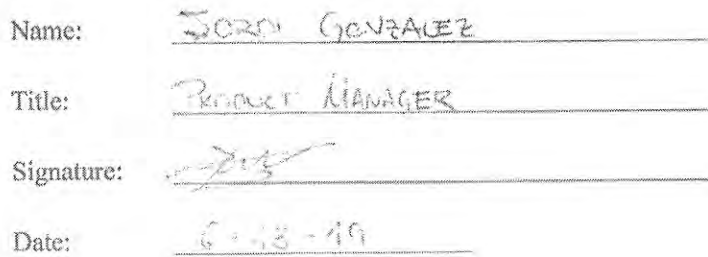 Name: JORDI GONZALEZ
Title: PRODUCT MANAGER
Signature:
Date: 6-18-19